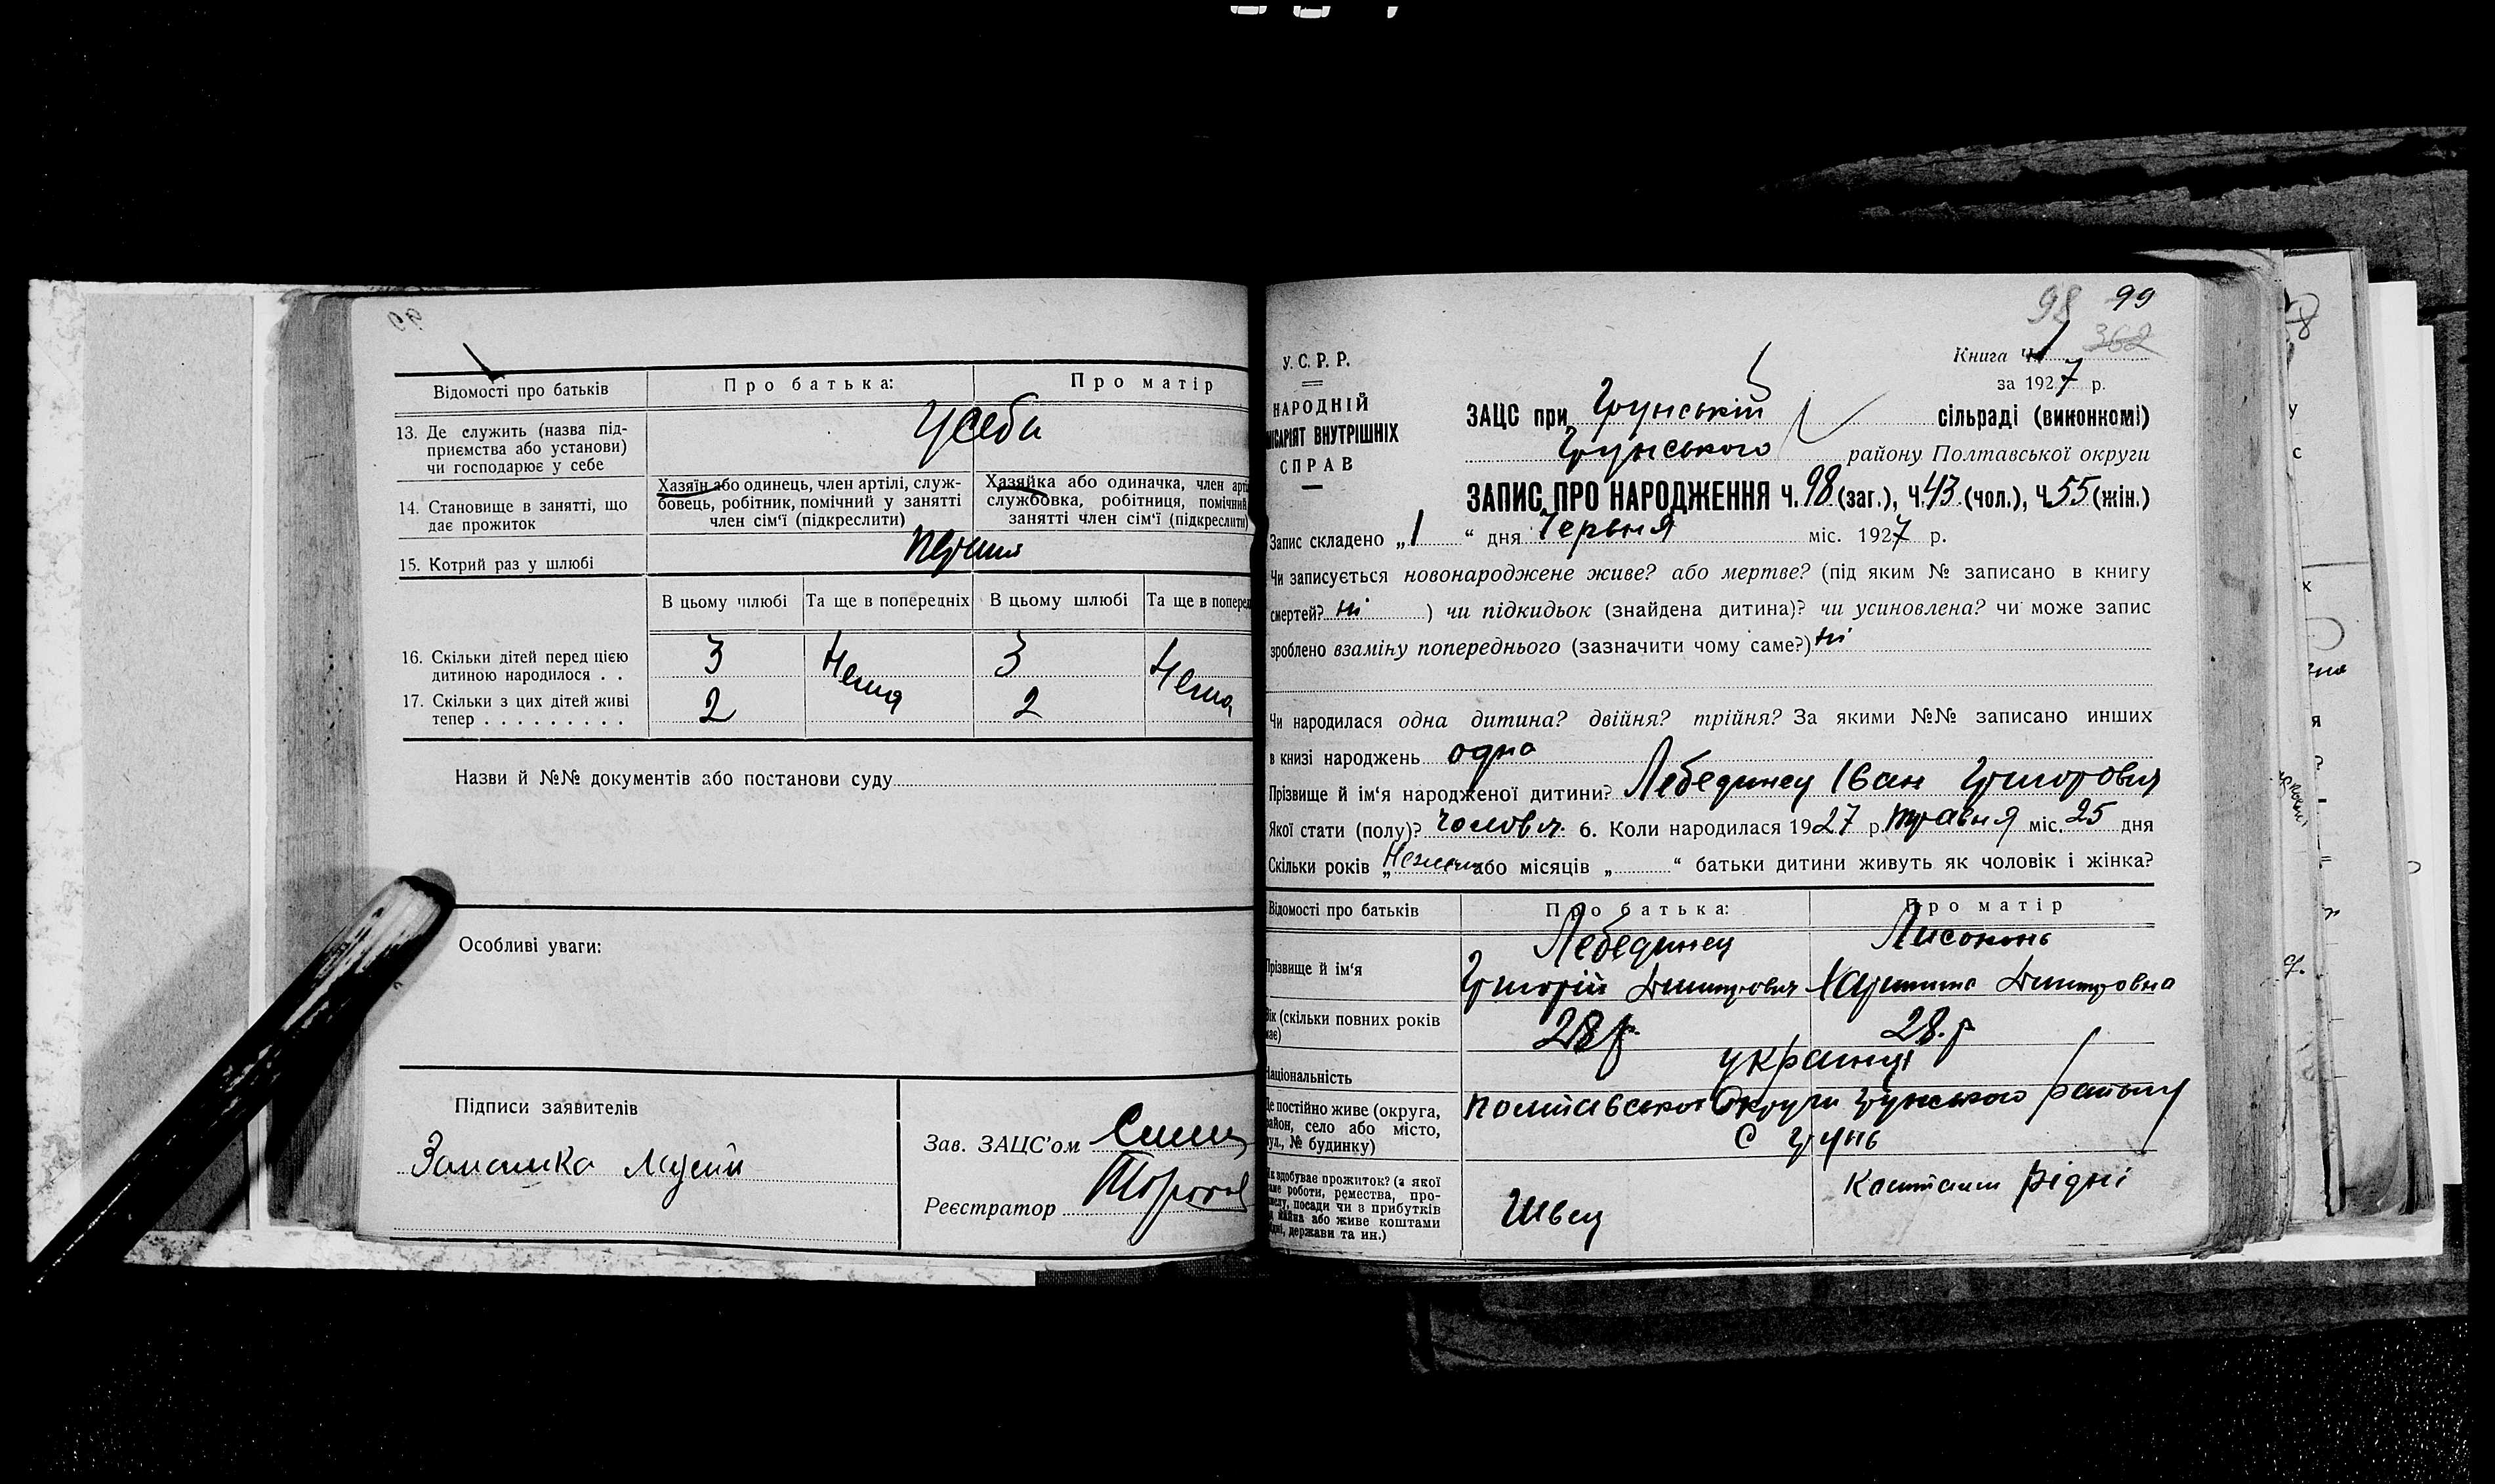 Відомості про батьків
Про батька:
Про матір
13. Де служить (назва під-
приємства або установи)
чи господарює у себе
Усебе
14. Становище в занятті, що
дає прожиток
Хазяїн або одинець, член артілі, служ-
бовець, робітник, помічний у занятті
член сім'ї (підкреслити)
Хазяйка або одиначка, член арті
службовка, робітниця, помічний
занятті член сім'ї (підкреслити)
15. Котрий раз у шлюбі
перший
В цьому шлюбі
Та ще в попередніх
В цьому шлюбі
Та ще в поперед
16. Скільки дітей перед цією
дитиною народилося . .
3
Нема
3
Нема
17. Скільки з цих дітей живі
тепер . . . . . . . . .
2
2
Назви й №№ документів або постанови суду
Особливі уваги:
Підписи заявителів
Зав. ЗАЦС'ом
Реєстратор
98 99
362
Книга Ч. 1
за 1927 р.
У. С. Р. Р.
НАРОДНІЙ
ІСАРІЯТ ВНУТРІШНІХ
СПРАВ
ЗАЦС при Грунській сільраді (виконкомі)
Грунського району Полтавської округи
ЗАПИС ПРО НАРОДЖЕННЯ Ч. 98 (заг.), Ч. 43 (чол.), Ч. 55 (жін.)
Запис складено „1“ дня Червня міс. 1927 р.
Чи записується новонароджене живе? або мертве? (під яким № записано в книгу
смертей? ні ) чи підкидьок (знайдена дитина)? чи усиновлена? чи може запис
зроблено взаміну попереднього (зазначити чому саме?) ні
Чи народилася одна дитина? двійня? трійня? За якими №№ записано инших
в книзі народжень одна
Прізвище й ім'я народженої дитини? Лебединец Іван Григорович
Якої стати (полу)? чоловіч. 6. Коли народилася 1927 р. травня міс. 25 дня
Скільки років „ або місяців „ “ батьки дитини живуть як чоловік і жінка?
Відомості про батьків
Про батька:
Про матір
Прізвище й ім'я
Лебединец
Григорій Дмитрович
Лисоконь
Дмитровна
Вік (скільки повних років
має)
28 р.
28. р
Національність
українці
Де постійно живе (округа,
район, село або місто,
вул., № будинку)
Полтавської Округи Грунського району
с Грунь
Як здобуває прожиток? (з якої
саме роботи, ремества, про-
мислу, посади чи з прибутків
з майна або живе коштами
рідні, держави та ин.)
Швец
Коштами рідні